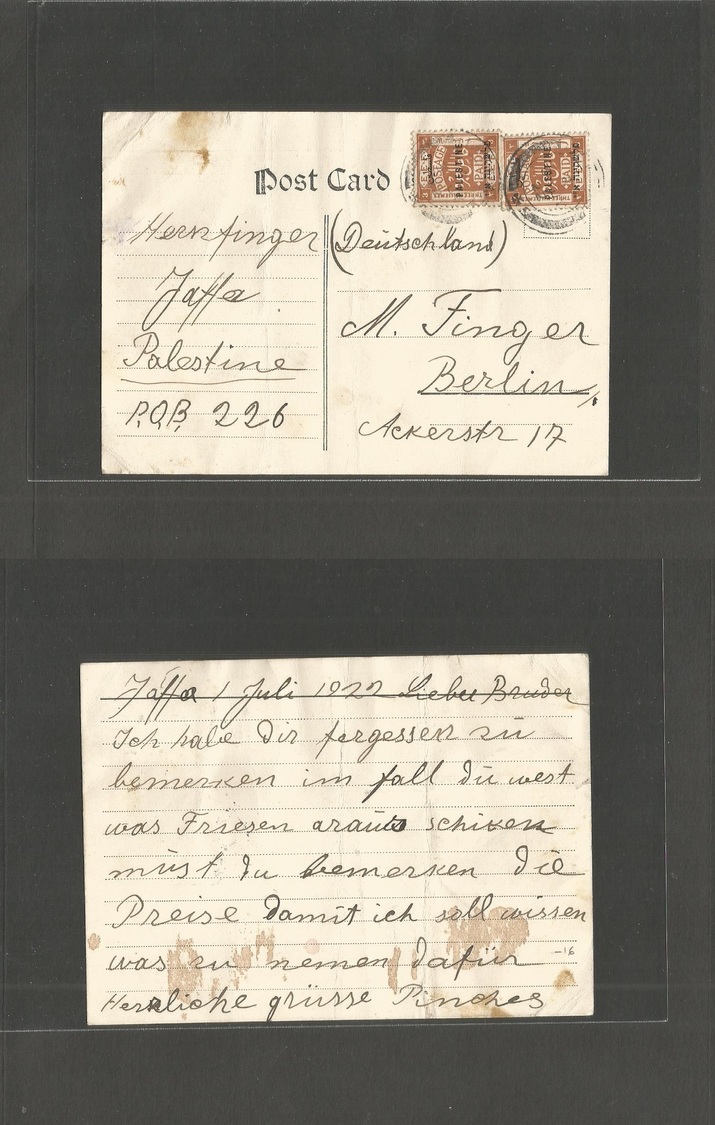 Post Card
POSTAGE
PAID
THREE MILLIEMES
PALESTINE
POSTAGE
PAID
THREE MILLIEMES
PALESTINE
Hernfinger
Jaffa
Palestine
P.O.B. 226
(Deutschland)
M. Finger
Berlin
Ackerstr 17
Jaffa 1 Juli 1922 Lieber Bruder
Ich habe dir fergessen zu
bemerken im fall du west
was Friesen araus schiken
müst du bemerken die
Preise damit ich soll wissen
was zu nemen dafür
-16
Herzliche grüsse Pinches